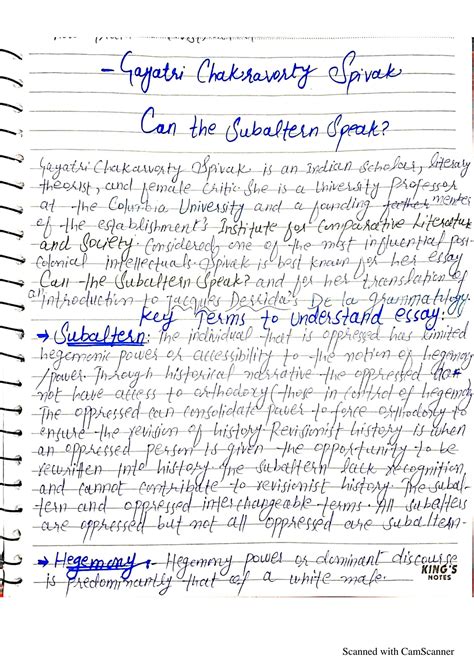 - Gayatri Chakravorty Spivak
Can the Subaltern Speak?
Gayatri Chakarvorty Spivak is an Indian Scholar, literary
theorist, and female critic. She is a University Professor
at the Columbia University and a founding
of the establishment's Institute for Comparative Literature
and Society. Considered one of the most influential post-
colonial intellectuals. Spivak is best known for her essay
Can the Subaltern Speak? and for her translation of
an Introduction to Jacques Derrida's De la grammatology.
Key Terms to understand essay:
→ Subaltern: The individual that is oppressed has limited
hegemonic power or accessibility to the notion of hegemony
/power. Through historical narrative the oppressed do
not have access to orthodoxy (those in control of hegemony
The oppressed can consolidate power to force orthodoxy to
ensure the revision of history. Revisionist history is when
an oppressed person is given the opportunity to be
rewritten into history. The subaltern lack recognition,
and cannot contribute to revisionist history. The subal-
tern and oppressed interchangeable terms. All subalterns
are oppressed but not all oppressed are subaltern.
→ Hegemony: Hegemony power or dominant discourse
is predominantly that of a white male.
KING'S
NOTES
Scanned with CamScanner